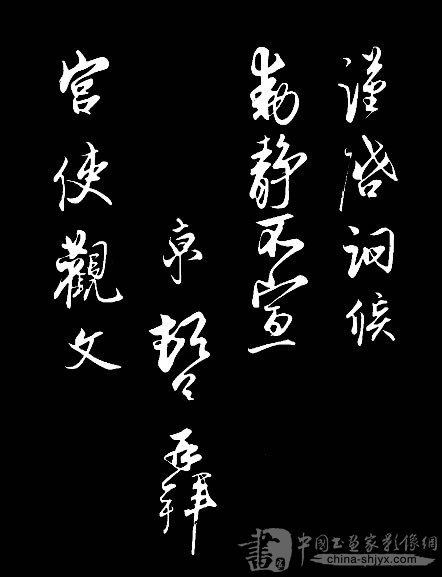 謹啓詢候
動靜不宣
京頓首再拜
宮使觀文
書
中國书画家影像網
china-shjyx.com